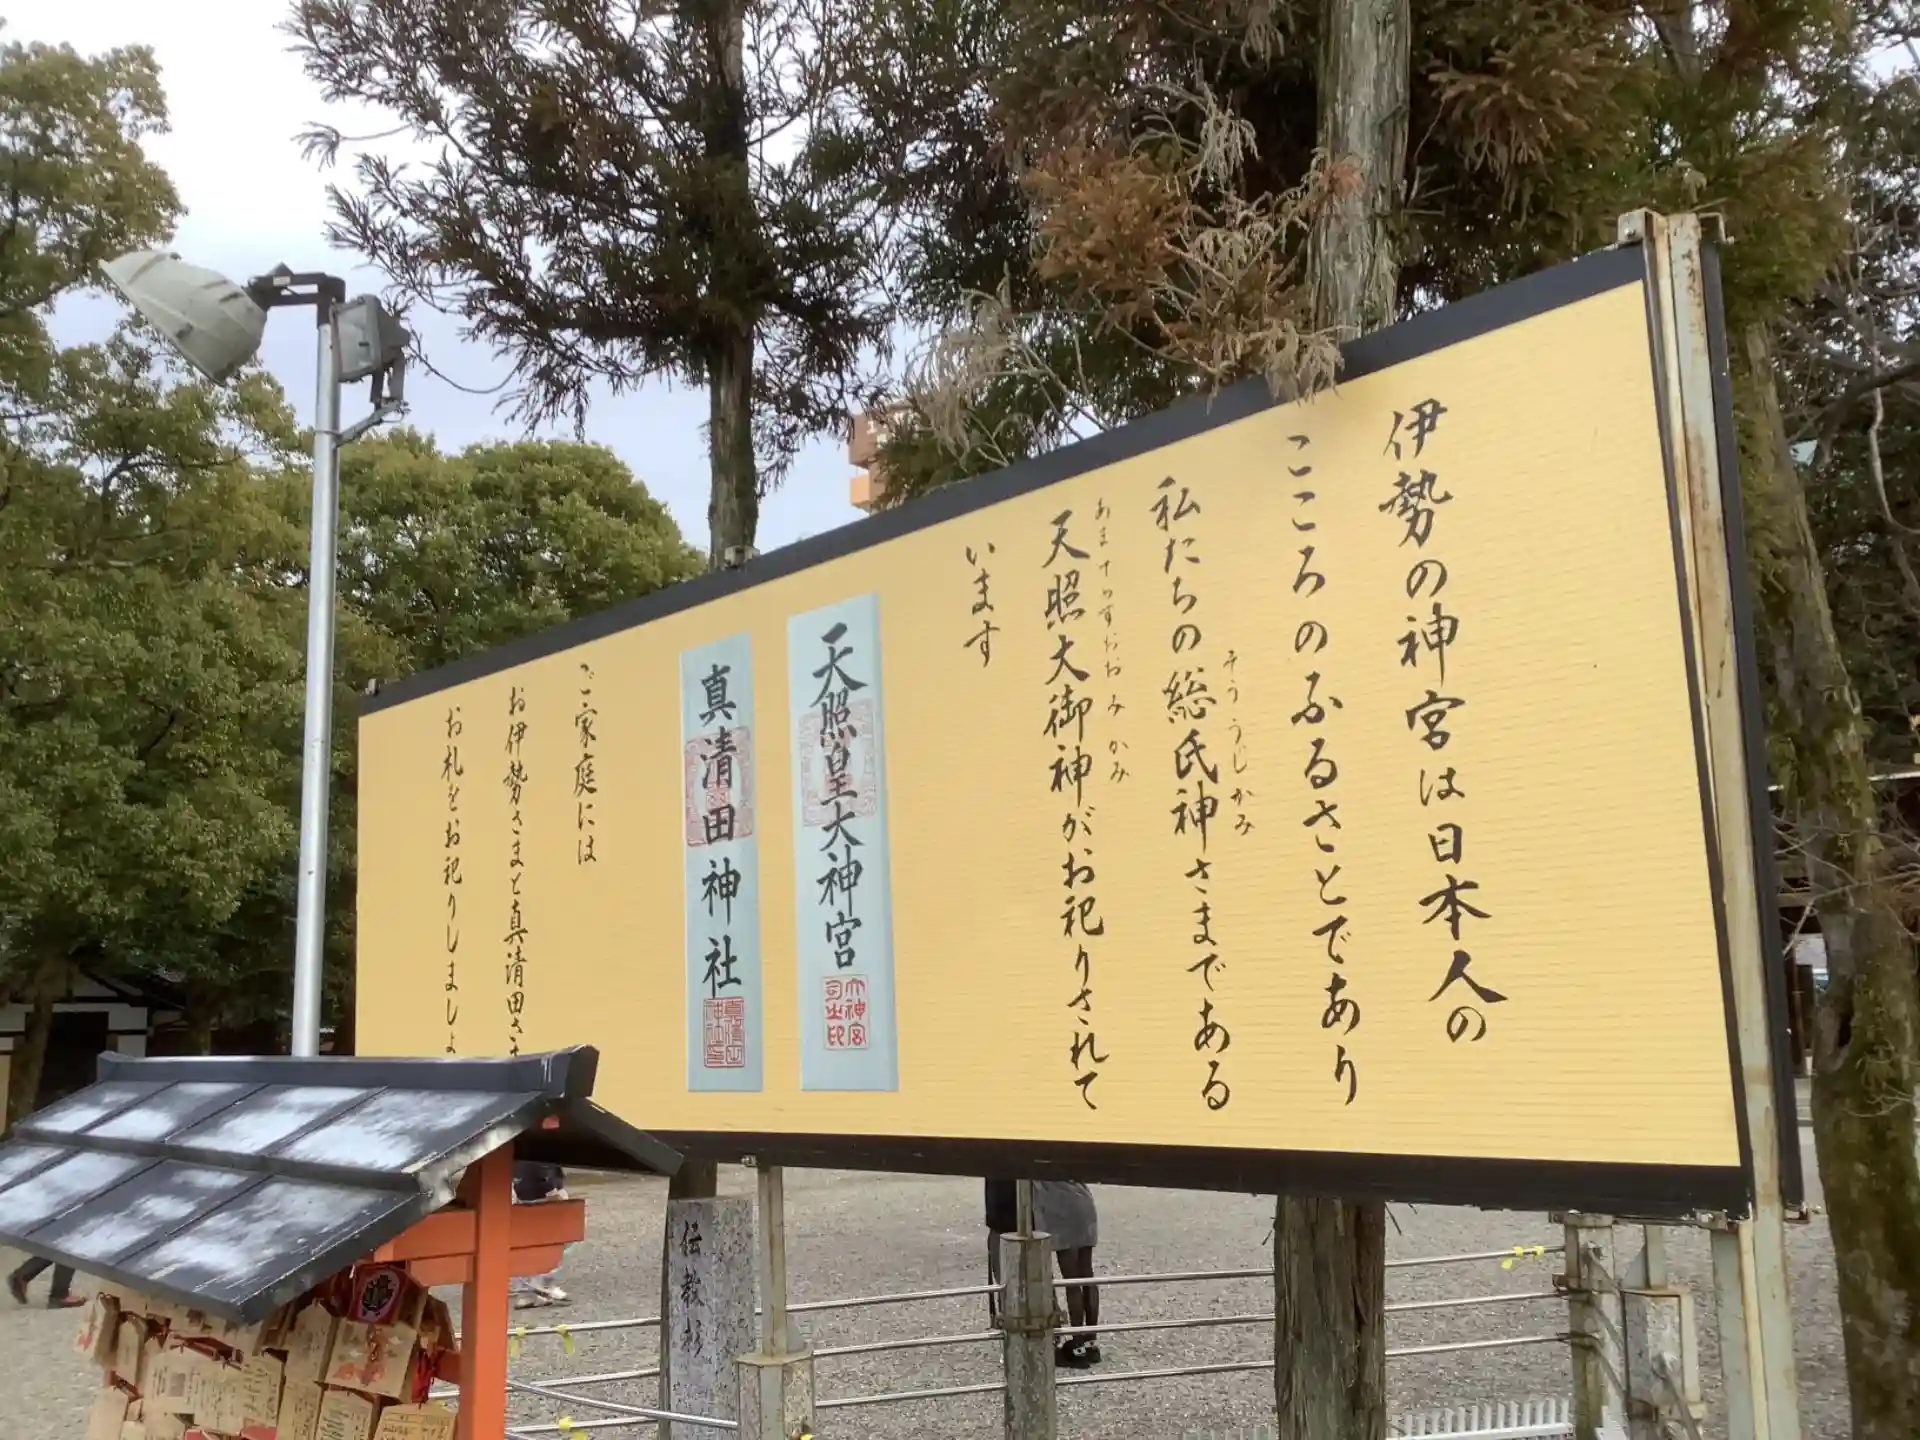 伊勢の神宮は日本人の
こころのふるさとであり
私たちの総氏神さまである
そううじかみ
天照大御神がお祀りされて
あまてらすおおみかみ
います
天照皇大神宮
大神宮
司之印
真清田神社
真清田
神社印
ご家庭には
お伊勢さまと真清田さま
お札をお祀りしましょ
伝教杉